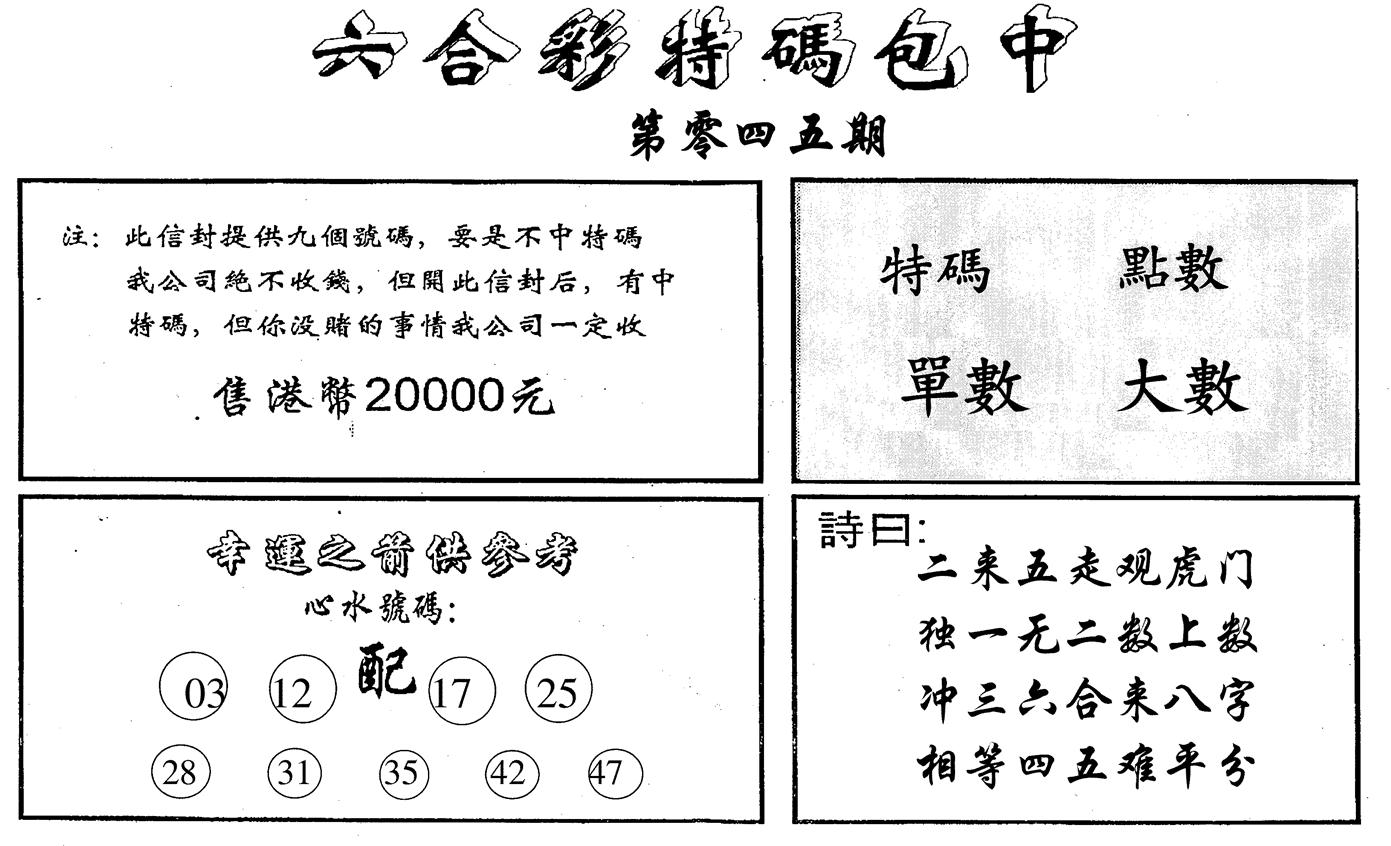 六合彩特碼包中
第零四五期
注：此信封提供九個號碼，要是不中特碼
我公司絕不收錢，但開此信封后，有中
特碼，但你没賭的事情我公司一定收
售港幣20000元
特碼 點數
單數 大數
幸運之箭供參考
心水號碼：
03 12 配 17 25
28 31 35 42 47
詩曰：
二来五走观虎门
独一无二数上数
冲三六合来八字
相等四五难平分